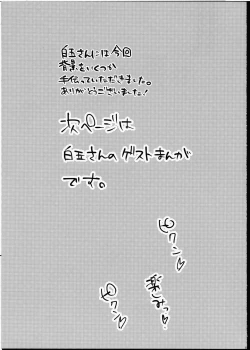 白玉さんには今回
背景をいくつか
手伝っていただきました。
ありがとうございました！
次ページは
白玉さんのゲストまんが
です。
ピクン♡
楽しみっ♡
ピクン♡